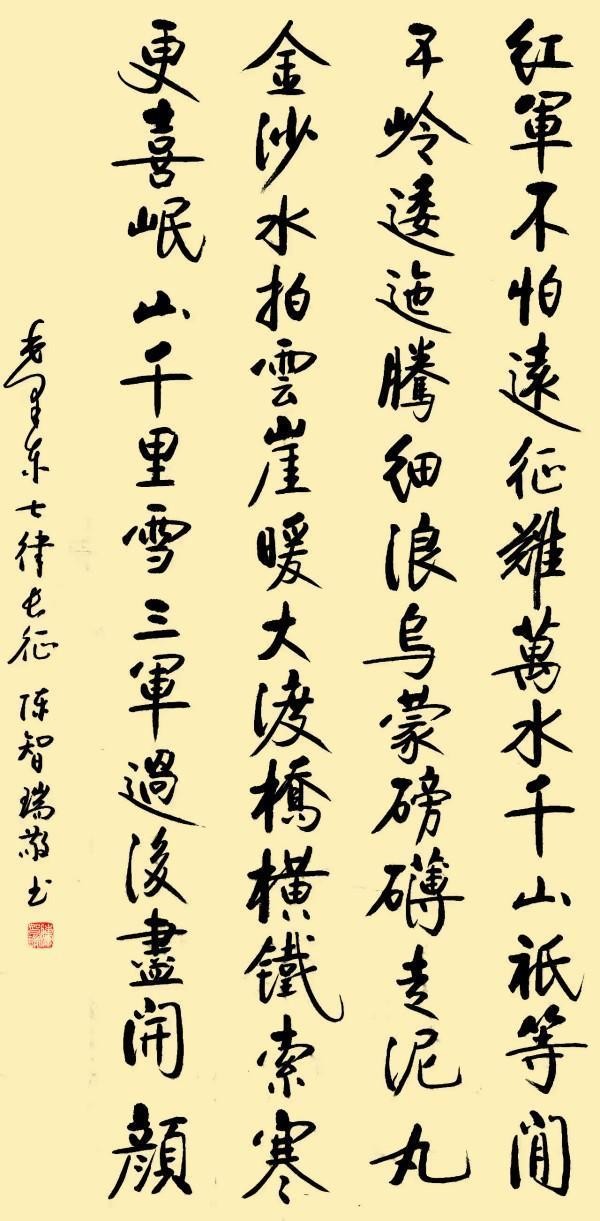 紅軍不怕遠征難萬水千山祇等閒
五岭逶迤騰細浪烏蒙磅礴走泥丸
金沙水拍雲崖暖大渡橋橫鐵索寒
更喜岷山千里雪三軍過後盡開顏
毛泽东七律长征 陈智瑞敬书